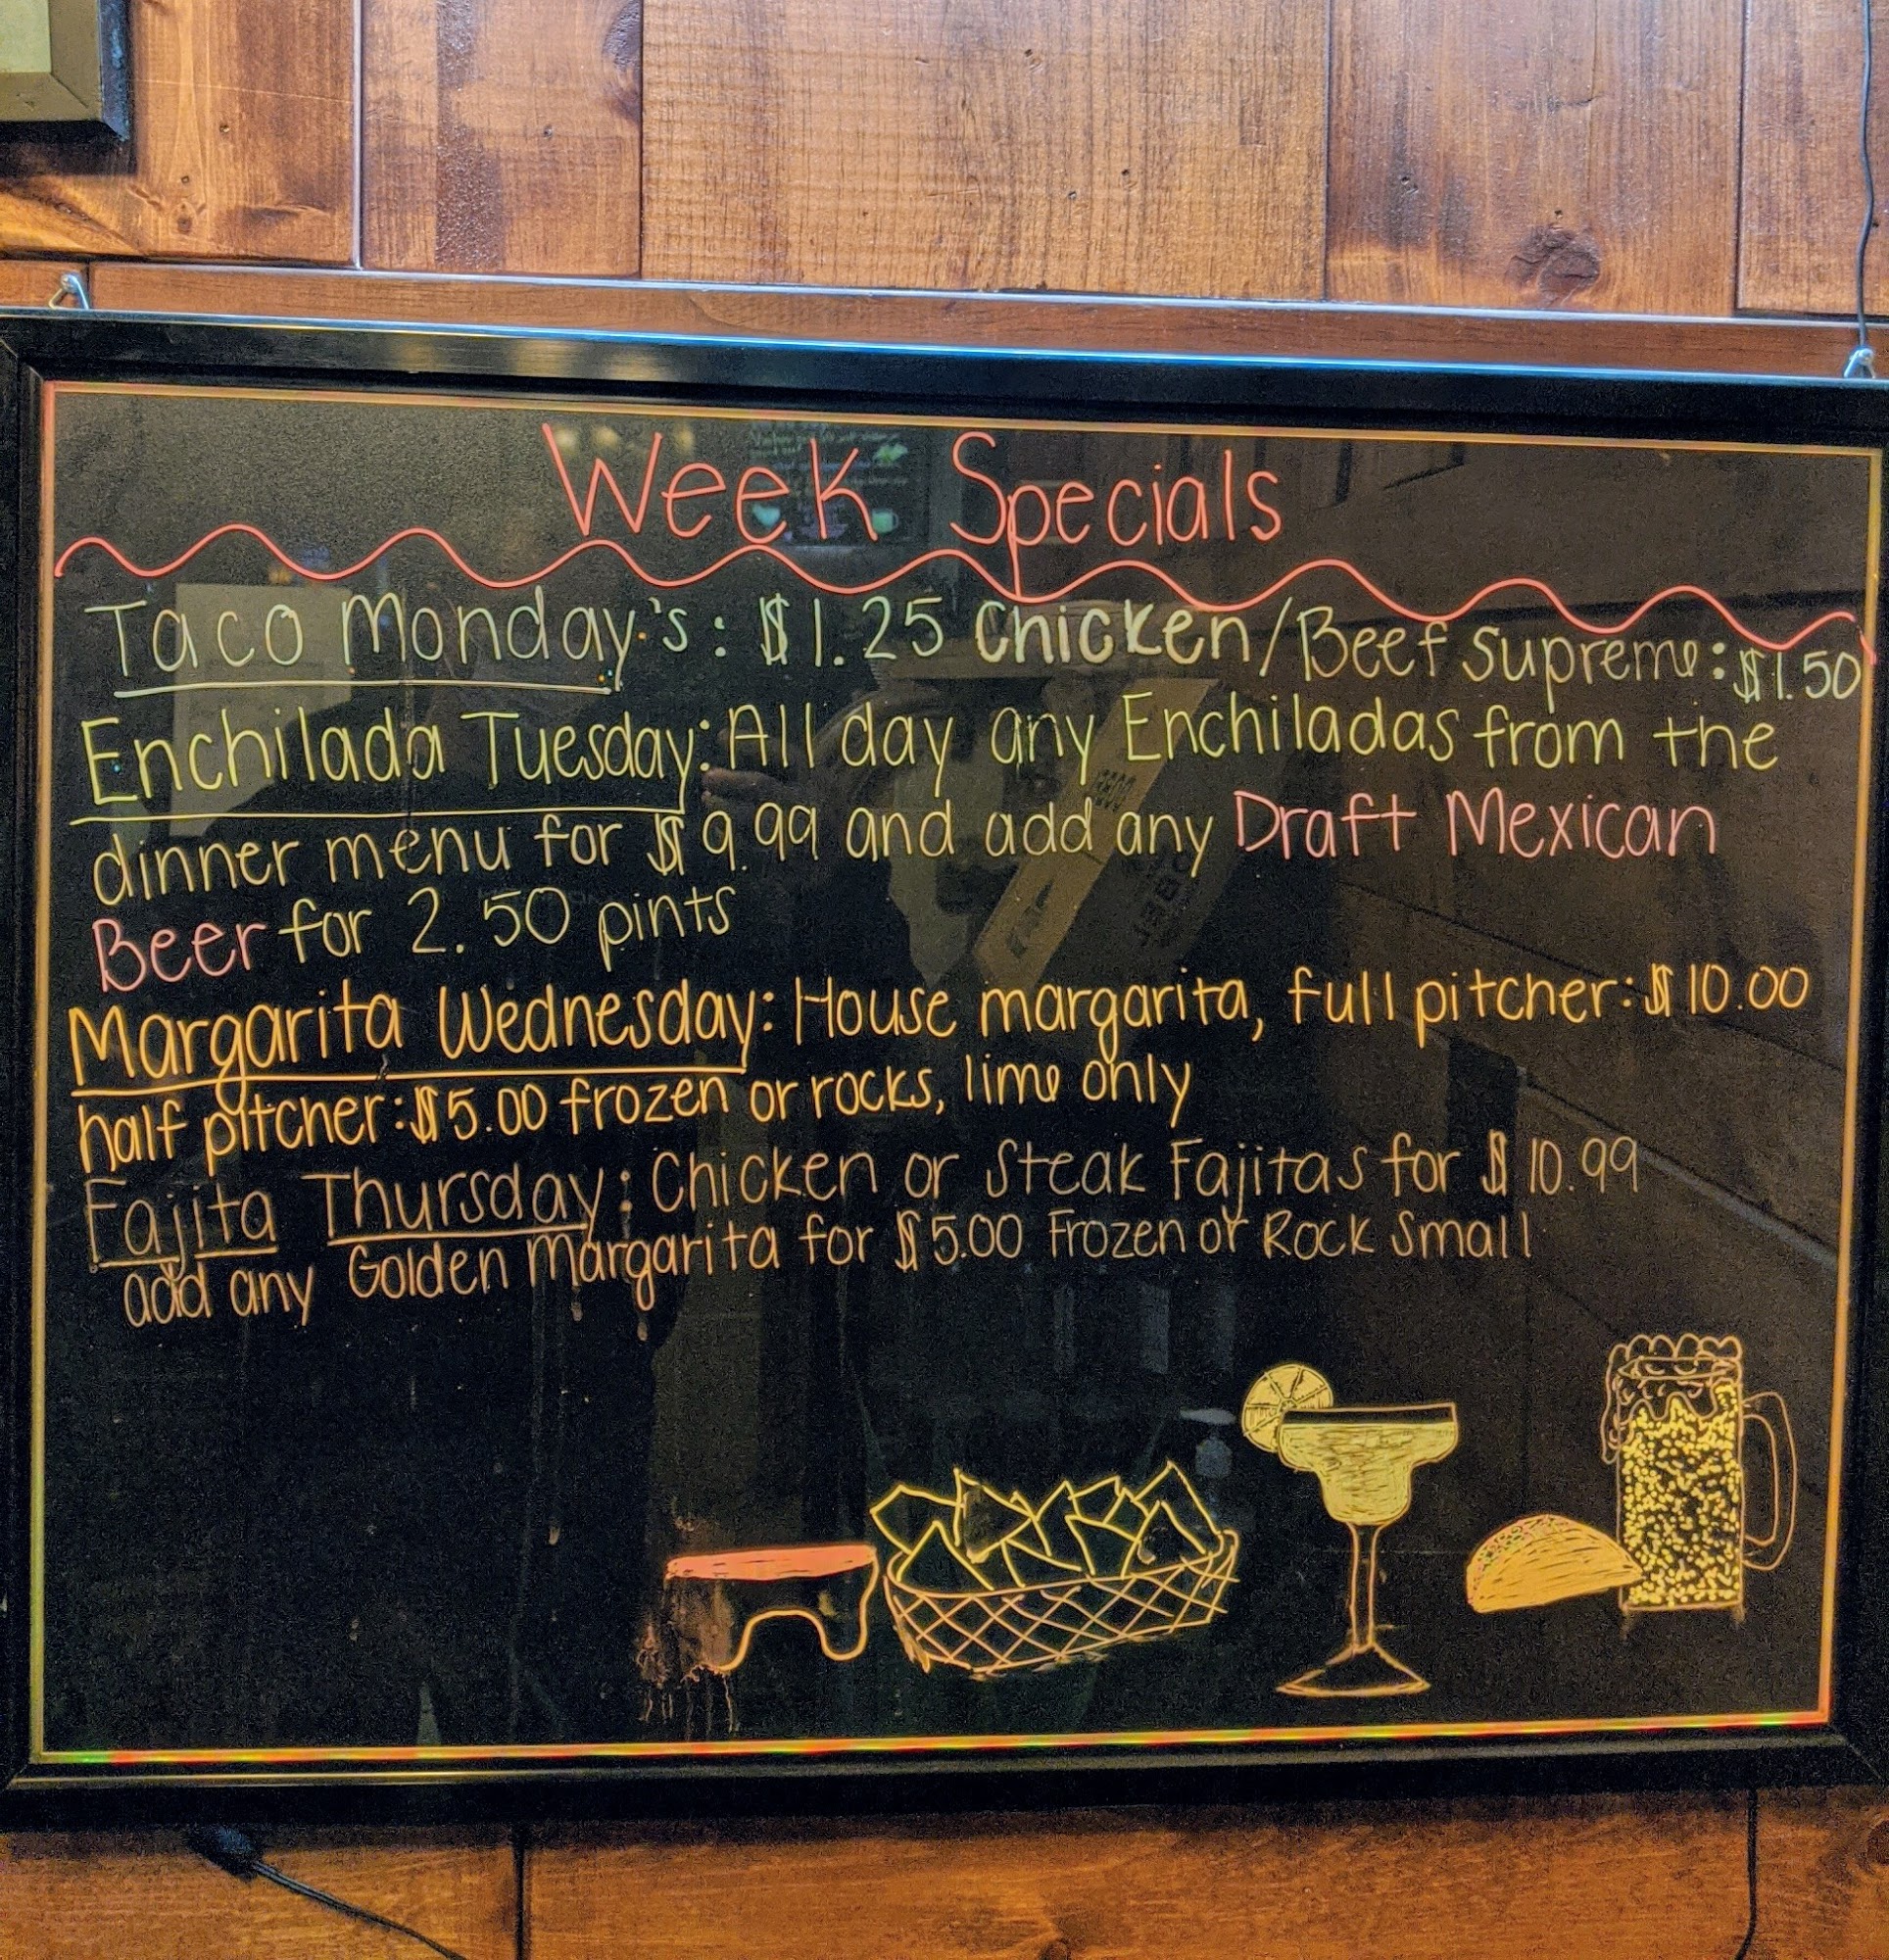 Week Specials
Taco Monday's: $1.25 Chicken/Beef Supreme: $1.50
Enchilada Tuesday: All day any Enchiladas from the
dinner menu for $9.99 and add any Draft Mexican
Beer for 2.50 pints
Margarita Wednesday: House margarita, full pitcher: $10.00
half pitcher: $5.00 frozen or rocks, lime only
Fajita Thursday: Chicken or Steak Fajitas for $10.99
add any Golden Margarita for $5.00 Frozen or Rock Small